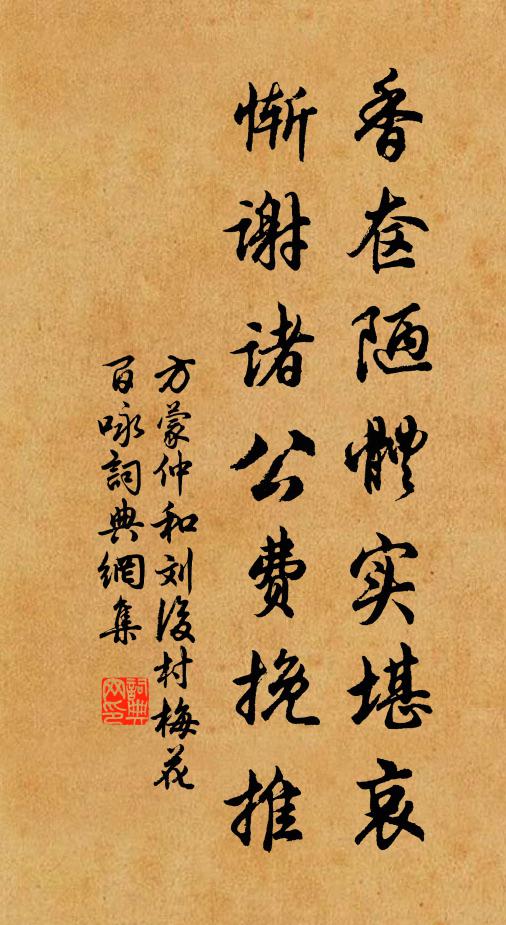 香奁陋體实堪哀
惭谢诸公费挽推
方蒙仲和刘後村梅花
百咏詞典網集
詞典
网印